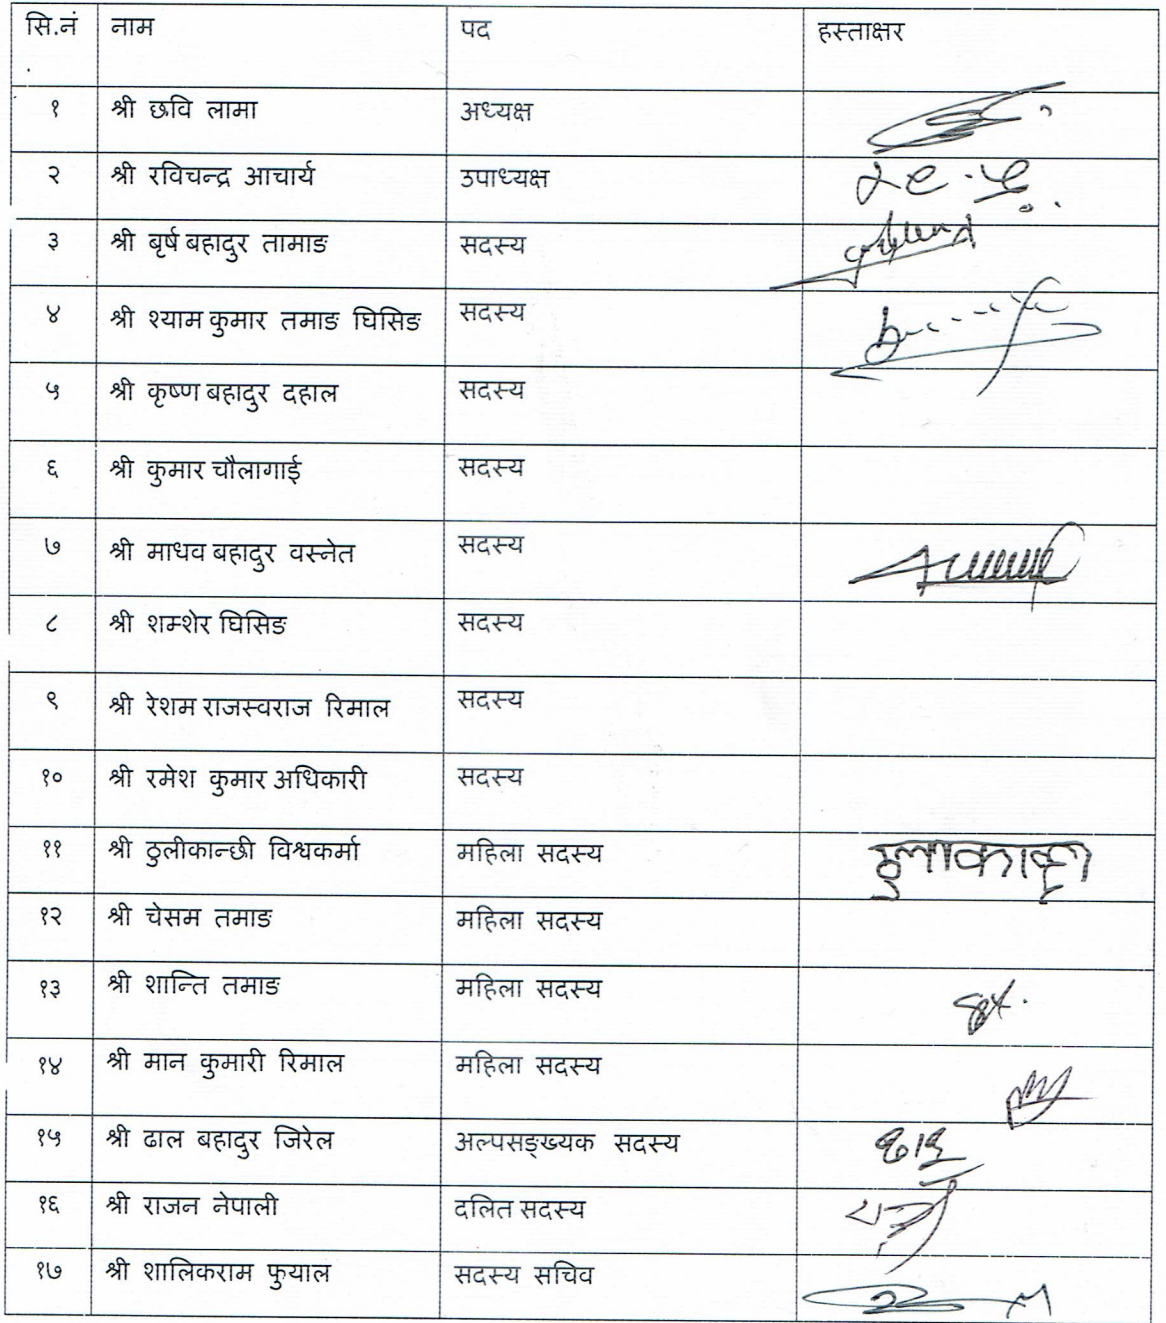 सि.नं नाम पद हस्ताक्षर
.
१ श्री छवि लामा अध्यक्ष
२ श्री रविचन्द्र आचार्य उपाध्यक्ष
३ श्री बृर्ष बहादुर तामाङ सदस्य
४ श्री श्याम कुमार तमाङ घिसिङ सदस्य
५ श्री कृष्ण बहादुर दहाल सदस्य
६ श्री कुमार चौलागाई सदस्य
७ श्री माधव बहादुर वस्नेत सदस्य
८ श्री शम्शेर घिसिङ सदस्य
९ श्री रेशम राजस्वराज रिमाल सदस्य
१० श्री रमेश कुमार अधिकारी सदस्य
११ श्री ठुलीकान्छी विश्वकर्मा महिला सदस्य
१२ श्री चेसम तमाङ महिला सदस्य
१३ श्री शान्ति तमाङ महिला सदस्य
१४ श्री मान कुमारी रिमाल महिला सदस्य
१५ श्री ढाल बहादुर जिरेल अल्पसङ्ख्यक सदस्य
१६ श्री राजन नेपाली दलित सदस्य
१७ श्री शालिकराम फुयाल सदस्य सचिव